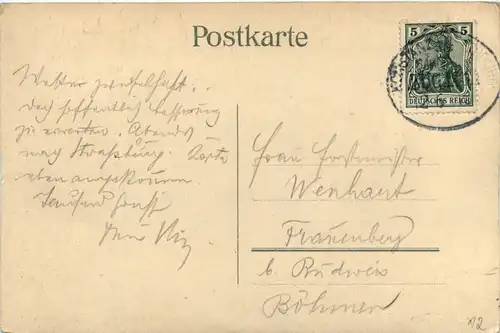 Postkarte
5 5
DEUTSCHES REICH
Wetter zweifelhaft.
Doch hoffentlich Besserung
zu erwarten. Abends
nach Straßburg. Karte
eben angekommen.
Tausend
Frau Forstmeister
Wenhart
Frauenberg
b. Budweis
Böhmen